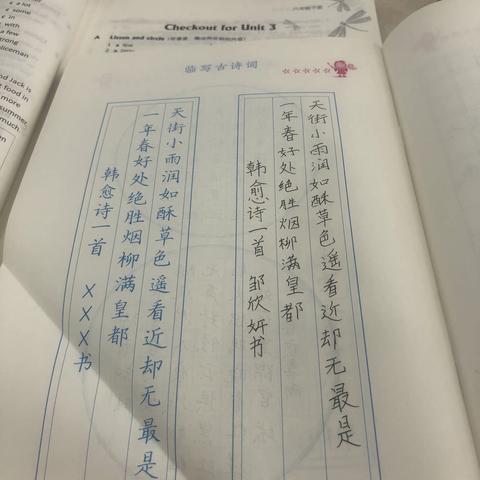 a lot
some
in
with
a few
strong
policeman
nd Jack is
food in
more
summer.
much.
Checkout for Unit 3
A Listen and circle
1 a few
临写古诗词
天街小雨润如酥草色遥看近却无最是
一年春好处绝胜烟柳满皇都
韩愈诗一首 邹欣妍书
天街小雨润如酥草色遥看近却无最是
一年春好处绝胜烟柳满皇都
韩愈诗一首 XXX书